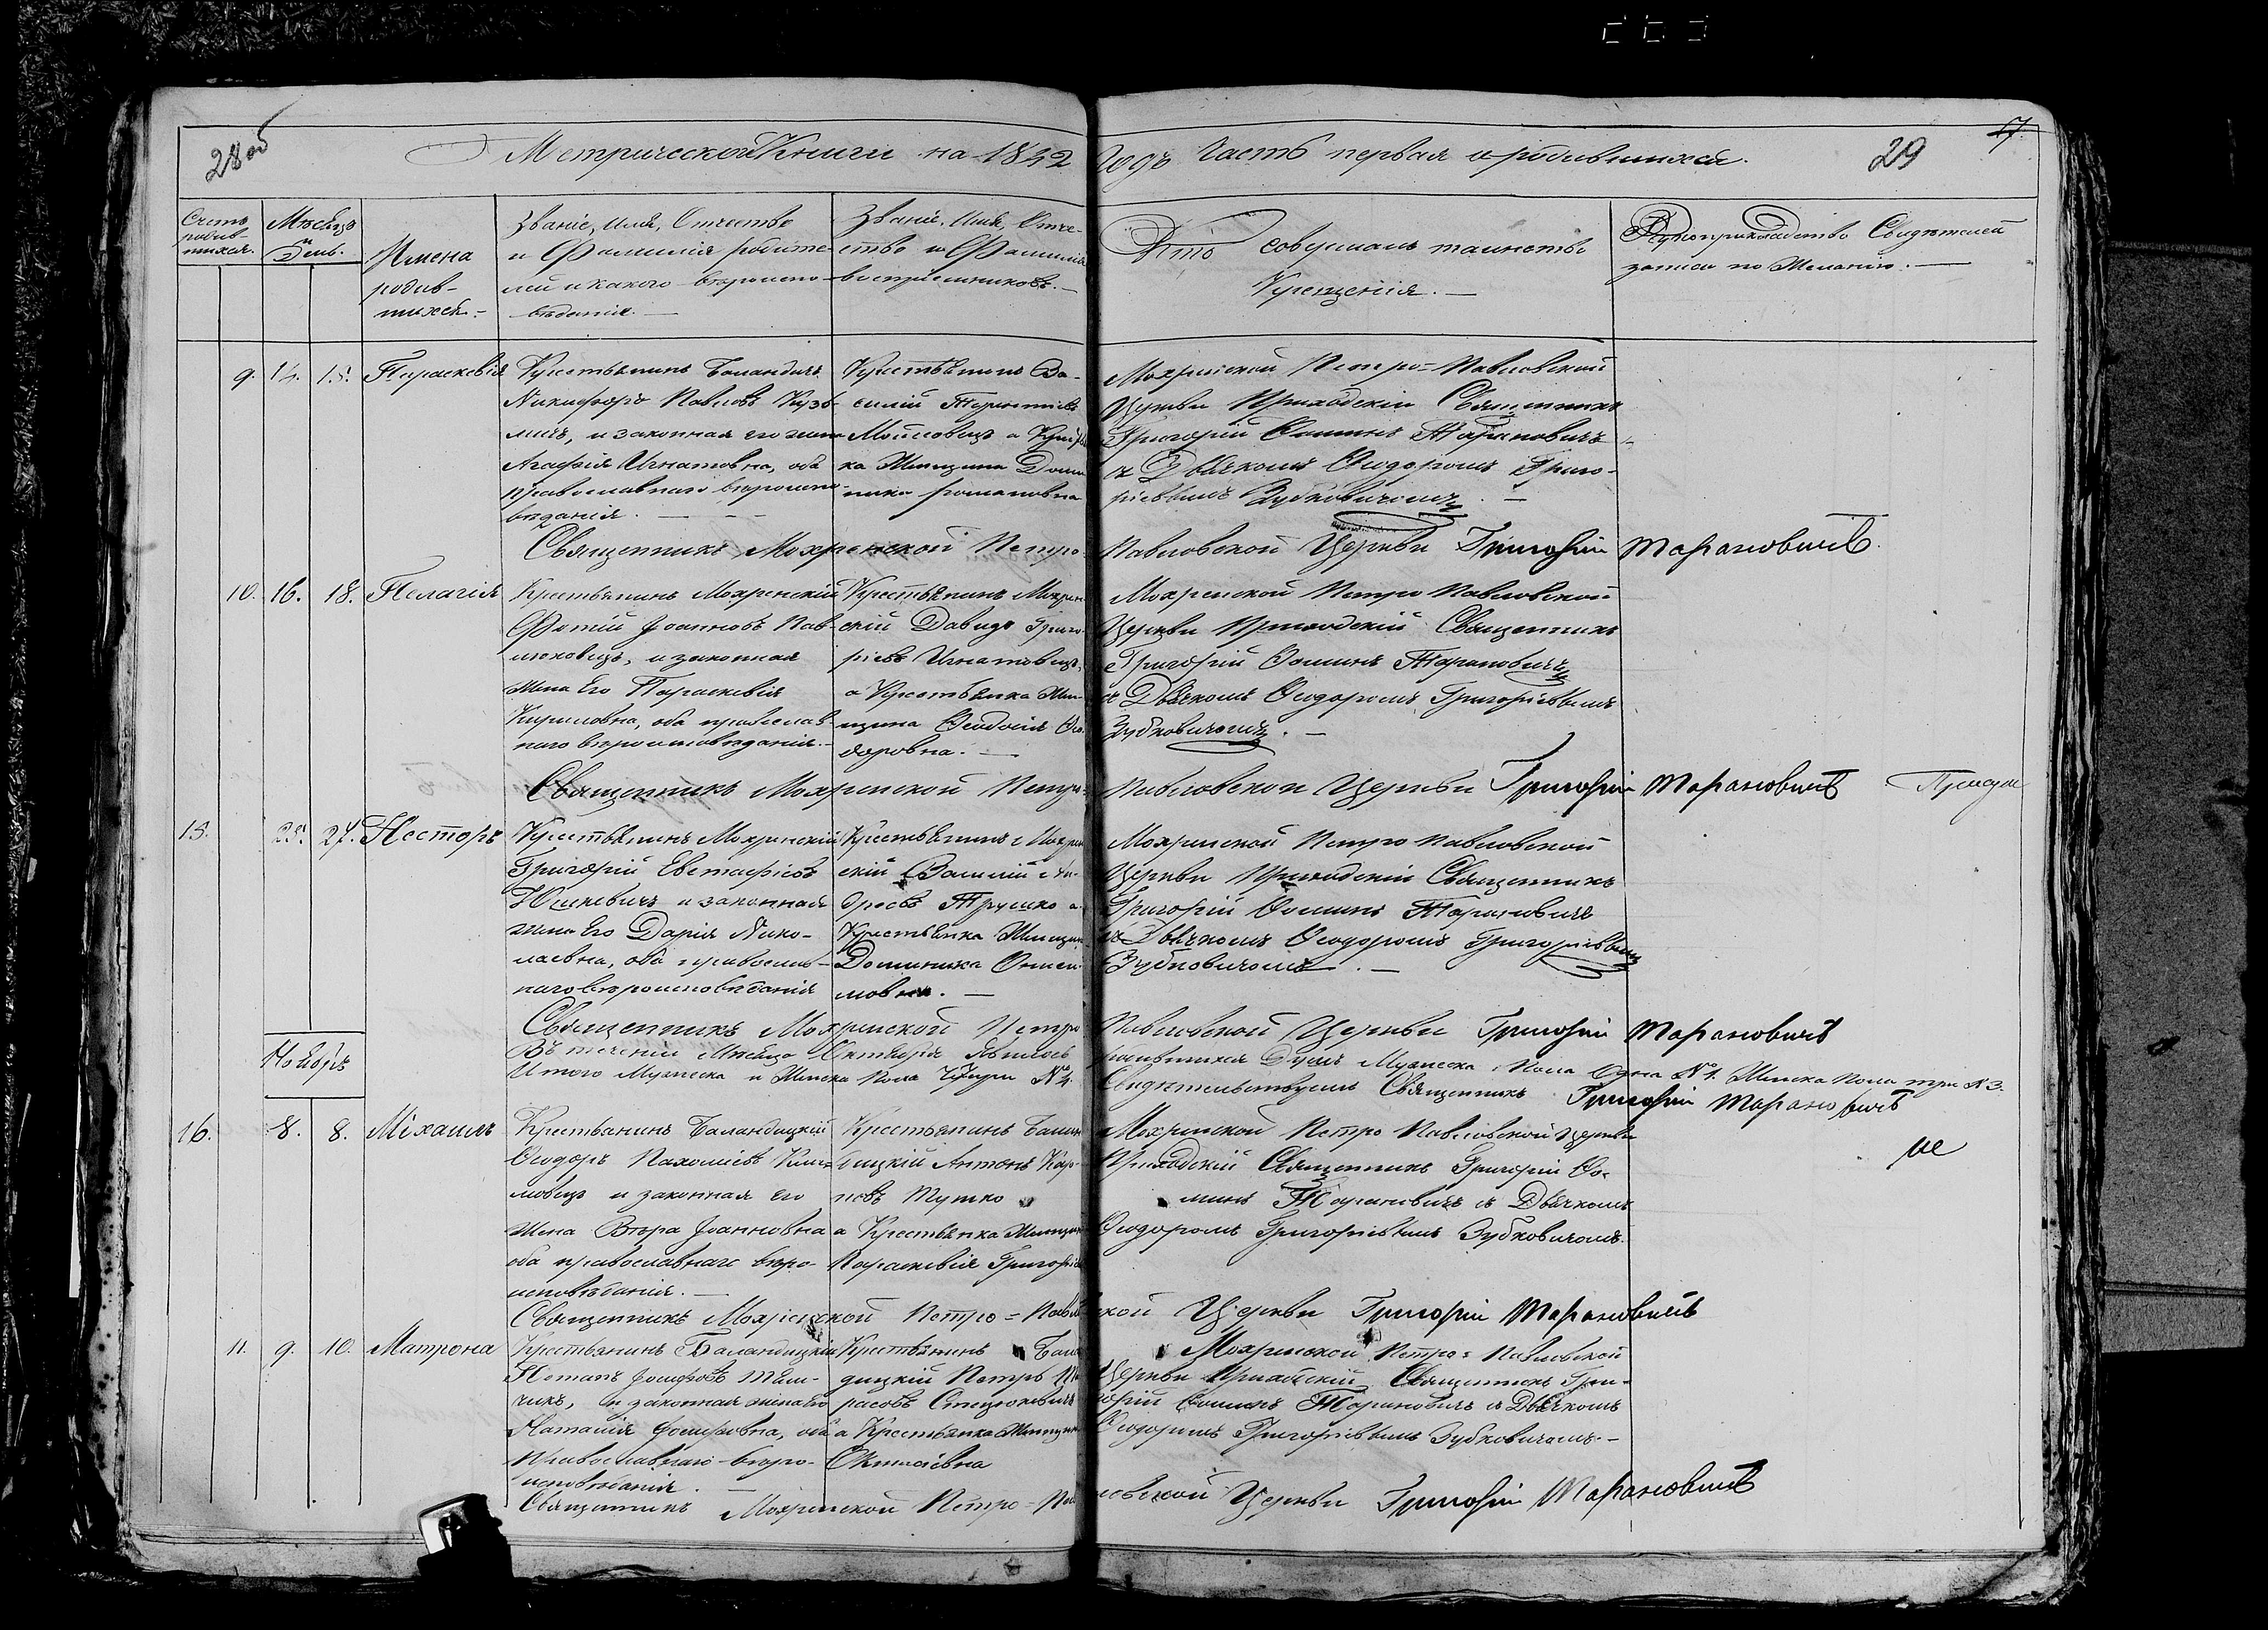 28об
Метрической Книги на 1842
Годъ Часть первая о родившихся.
29
17.
Счетъ родив-шихся.
Мѣсяцъ и День.
Имена родив-шихся.
Званіе, имя, Отчество
и Фамилія родите-
лей и какого вѣроиспо-
вѣданія.
Званіе, Имя, Отче-
ство и Фамилія
воспріемниковъ.
Кто совершалъ таинство
Крещенія.
Рукоприкладство Свидѣтелей
записи по Желанію.
9. 14. 15. Параскевія
Крестьянинъ Баландичъ
Никифоръ Павловъ Кузь-
мичъ, и законная его жена
Агафія Игнатовна, оба
православнаго вѣроиспо-
вѣданія.
Крестьянинъ Ва-
силій Терентіевъ
а Кресть
ка Жинщина Доми
ника Романовна
Мохринской Петро=Павловской
Церкви Приходскій Священникъ
Григорій Ѳоминъ Тарановичъ
съ Дьячкомъ Ѳеодоромъ Григо-
ріевымъ Зубковичомъ.
Священникъ Мохринской Петро-
Павловской Церкви Григорій Тарановичъ
10. 16. 18. Пелагія
Крестьянинъ Мохринскій
Фотій Іоанновъ Пав-
люковецъ, и законная
Жена Его Параскевія
Кириловна, оба православ-
наго вѣроисповѣданія.
Крестьянинъ Мохрин
скій Давидъ Григо-
ріевъ Игнатовецъ,
а Крестьянка Жин-
щина Ѳеодосія Ѳео-
доровна.
Мохринской Петро Павловской
Церкви Приходскій Священникъ
Григорій Ѳоминъ Тарановичъ
съ Дьячкомъ Ѳеодоромъ Григоріевымъ
Зубковичомъ.
Священникъ Мохринской Петро-
Павловской Церкви Григорій Тарановичъ
15. 25. 27. Несторъ
Крестьянинъ Мохринскій
Григорій Евстафіевъ
Юшкевичъ и законная
жена Его Дарія Нико-
лаевна, оба православ-
наго вѣроисповѣданія
Крестьянинъ Мохрин
скій Василій Ан-
дреевъ Трушко а
Крестьянка Жинщин
Доминика
Мохринской Петро Павловской
Церкви Приходскій Священникъ
Григорій Ѳоминъ Тарановичъ
съ Дьячкомъ Ѳеодоромъ Григоріевымъ
Зубковичомъ.
Священникъ Мохринской Петро
Павловской Церкви Григорій Тарановичъ
Въ теченіи Мѣсяца Октября
родившихся Душъ Мужеска Пола Одна № 1. Женска Пола три № 3.
Итого Мужеска и Женска Пола Четыри № 4.
Свидѣтельствуемъ Священникъ Григорій Тарановичъ
Ноябрь
16. 8. 8. Міхаилъ
Крестьянинъ Баландицкій
Ѳеодоръ Пахоміевъ Кли-
мовецъ и законная его
Жена Вѣра Іоанновна
оба православнаго вѣро-
исповѣданія.
Крестьянинъ Балан
дицкій Антонъ Кар-
повъ Тутко
а Крестьянка Жинщин
Параскевія Григорі
Мохринской Петро Павловской Церкви
Приходскій Священникъ Григорій Ѳо-
минъ Тарановичъ съ Дьячкомъ
Ѳеодоромъ Григоріевымъ Зубковичомъ.
Священникъ Мохринской Петро=Павлов
ской Церкви Григорій Тарановичъ
11. 9. 10. Матрона
Крестьянинъ Баландицкій
Потапъ Іосифовъ
и законная жена его
Наталія Іосифовна, оба
Православнаго вѣро-
исповѣданія.
Крестьянинъ Балан
дицкій Петръ
расовъ Стецюкевичъ
а Крестьянка Жинщин
Мохринской Петро=Павловской
Церкви Приходскій Священникъ Гри-
горій Ѳоминъ Тарановичъ съ Дьячкомъ
Ѳеодоромъ Григоріевымъ Зубковичомъ.
Священникъ Мохринской Петро=Пав
ловской Церкви Григорій Тарановичъ